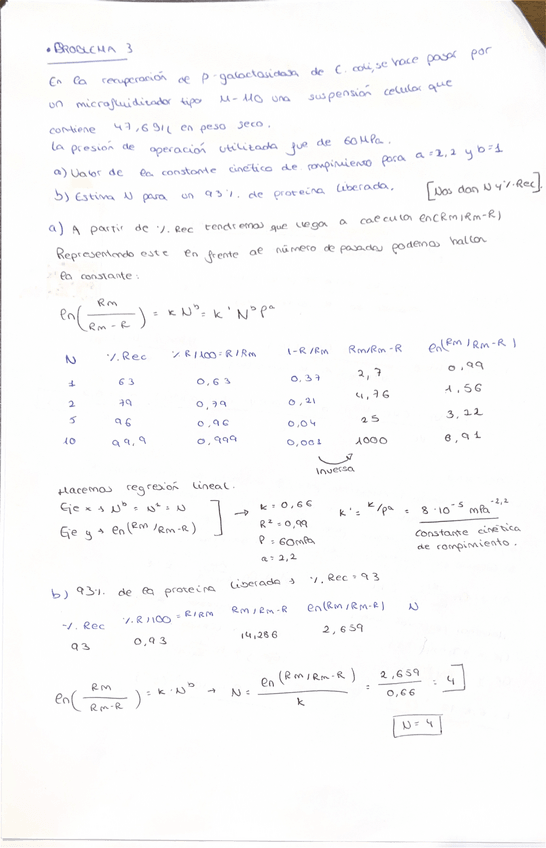 • PROBLEMA 3
En la recuperación de β-galactosidasa de E. coli, se hace pasar por
un microfluidizador tipo M-110 una suspensión celular que
contiene 47,6 g/L en peso seco.
La presión de operación utilizada fue de 60 MPa.
a) Valor de la constante cinética de rompimiento para a=2,2 y b=1
b) Estima N para un 93% de proteína liberada. [Nos dan N y %Rec].
a) A partir de % Rec tendremos que llegar a calcular ln(Rm/Rm-R)
Representando este en frente al número de pasadas podemos hallar
la constante:
ln(Rm/Rm-R) = k N^b = k' N^b P^a
N %.Rec %R/100=R/Rm 1-R/Rm Rm/Rm-R ln(Rm/Rm-R)
1 63 0,63 0,37 2,7 0,99
2 79 0,79 0,21 4,76 1,56
5 96 0,96 0,04 25 3,22
10 99,9 0,999 0,001 1000 6,91
inversa
Hacemos regresión lineal.
Eje x → N^b = N^1 = N
Eje y → ln(Rm/Rm-R)
→ k = 0,66
R² = 0,99
P = 60mPa
a = 2,2
k' = k/P^a = 8·10^-5 mPa^-2,2
constante cinética
de rompimiento.
b) 93% de la proteína liberada → %.Rec = 93
%.Rec %R/100=R/Rm Rm/Rm-R ln(Rm/Rm-R) N
93 0,93 14,286 2,659
ln(Rm/Rm-R) = k·N^b → N = ln(Rm/Rm-R)/k = 2,659/0,66 = 4
N = 4